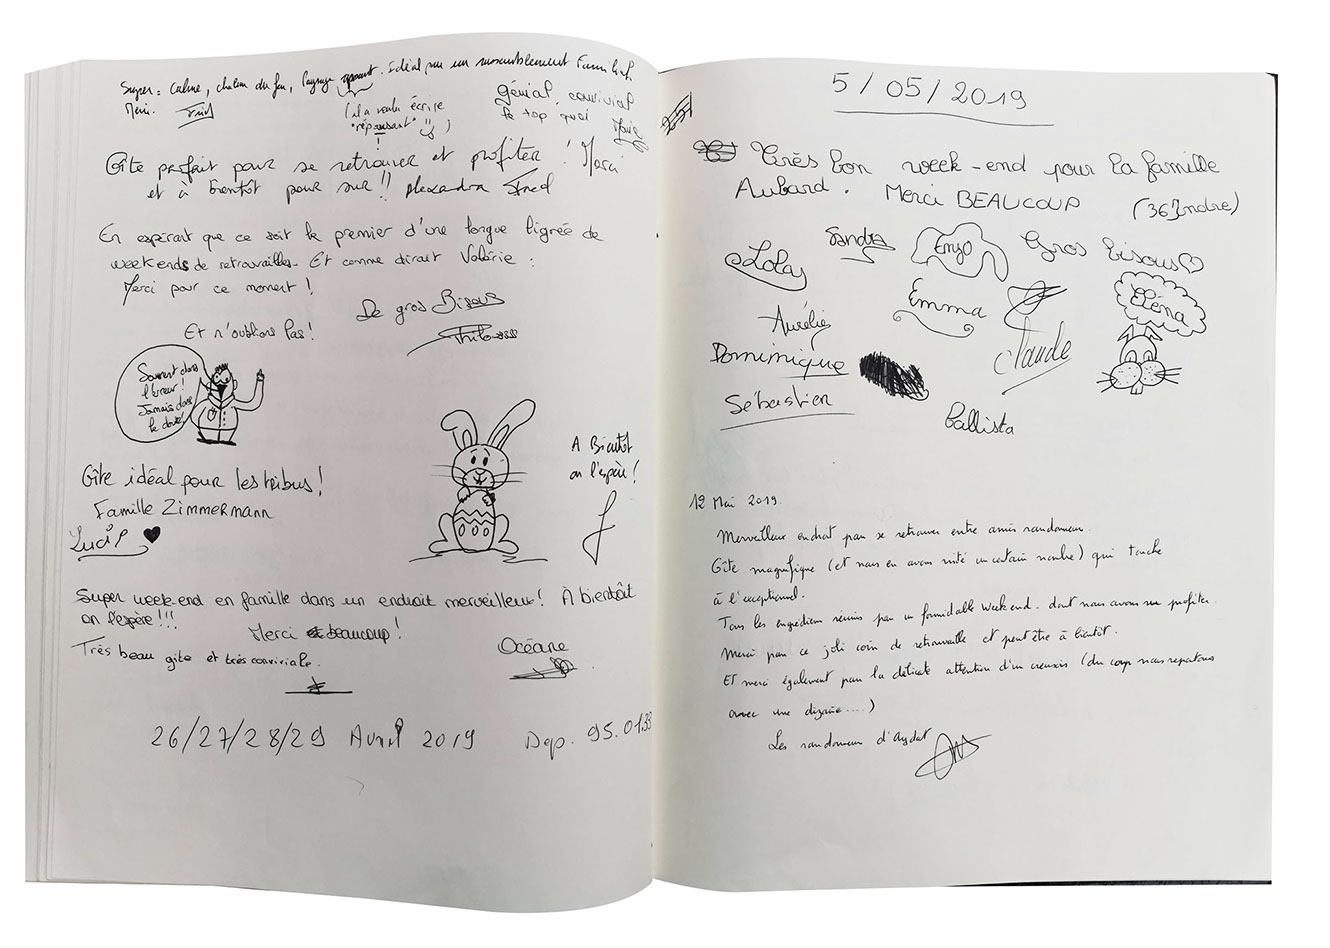 Super = calme, chaleur du feu, Paysage. Idéal pour un rassemblement Familial
Merci. Fred
(il a voulu écrire
"répausant" !)
génial, convivial
le top quoi
Marie
Gîte parfait pour se retrouver et profiter ! Merci
et à bientôt pour sur !! Alexandra Fred
En espérant que ce soit le premier d'une longue lignée de
weekends de retrouvailles. Et comme dirait Valérie :
Merci pour ce moment !
De gros Bisous
Et n'oublions Pas !
Souvent dans
l'erreur !
Jamais dans
le doute !
A Bientôt
on l'espère !
Gîte idéal pour les tribus !
Famille Zimmermann
Lucie
Super week-end en famille dans un endroit merveilleux ! A bientôt
on l'espère !!!
Merci beaucoup !
Océane
Très beau gite et très conviviale.
26/27/28/29 Avril 2019 Dep. 95.01.38
5/05/2019
Très bon week-end pour la famille
Aubard. Merci BEAUCOUP (36 Indre)
Lola
Sandra
Enzo
Gros bisous
Emma
Eléna
Aurélie
Claude
Dominique
Sébastien
Ballista
12 Mai 2019.
Merveilleux endroit pour se retrouver entre amis randonneurs.
Gîte magnifique (et nous en avons visité un certain nombre) qui touche
à l'exceptionnel.
Tous les ingrédients réunis pour un formidable week end. dont nous avons su profiter.
Merci pour ce joli coin de retrouvaille et peut être à bientôt.
Et merci également pour la délicate attention d'un creusois (du coup nous repartons
avec une dizaine....)
Les randonneurs d'Aydat